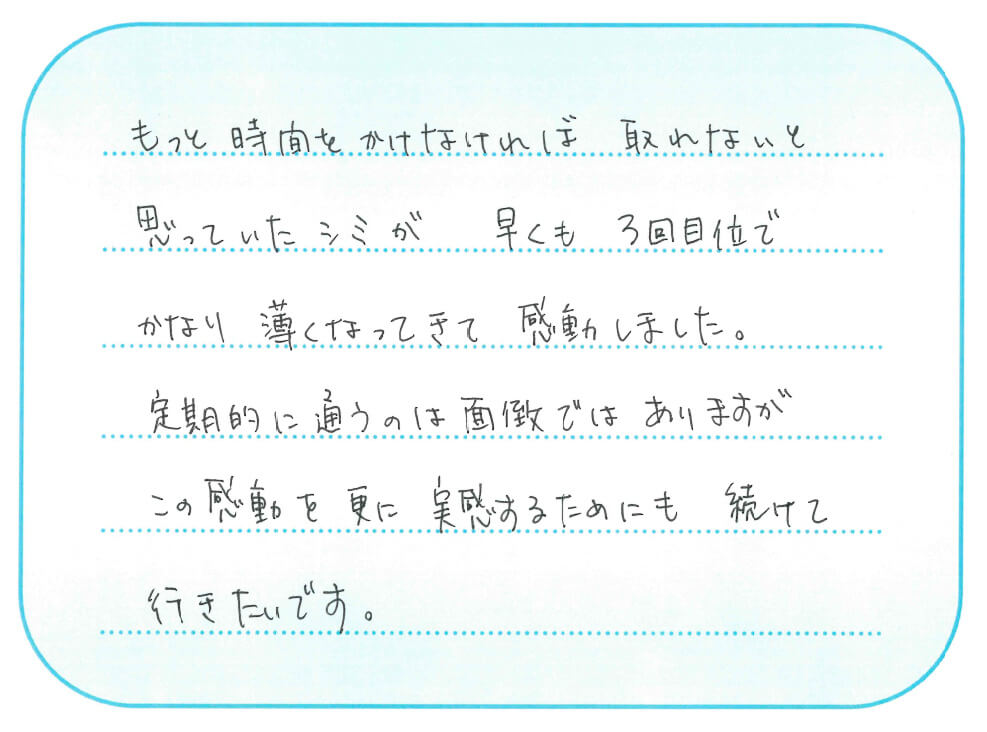 もっと時間をかけなければ 取れないと
思っていたシミが 早くも 3回目位で
かなり 薄くなってきて 感動しました。
定期的に通うのは面倒ではありますが
この感動を更に 実感するためにも 続けて
行きたいです。